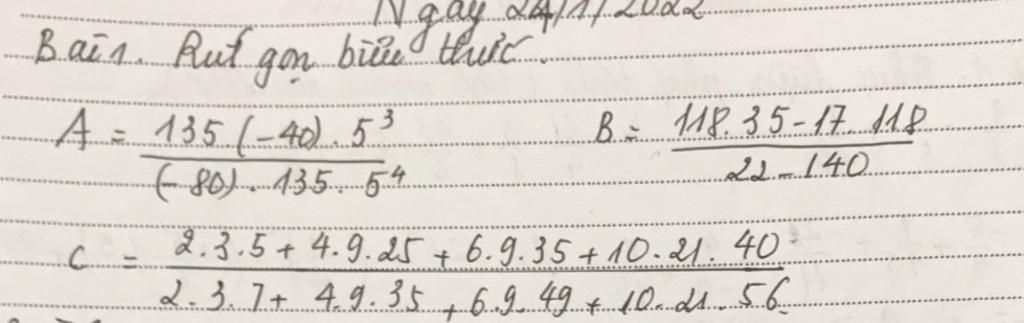 Ngày 24/1/2022
Bài 1. Rút gọn biểu thức.
A = 135(-40).5³ / (-80).135.5⁴ B = 118.35-17.118 / 22-140
C = 2.3.5+4.9.25+6.9.35+10.21.40 / 2.3.7+4.9.35+6.9.49+10.21.56